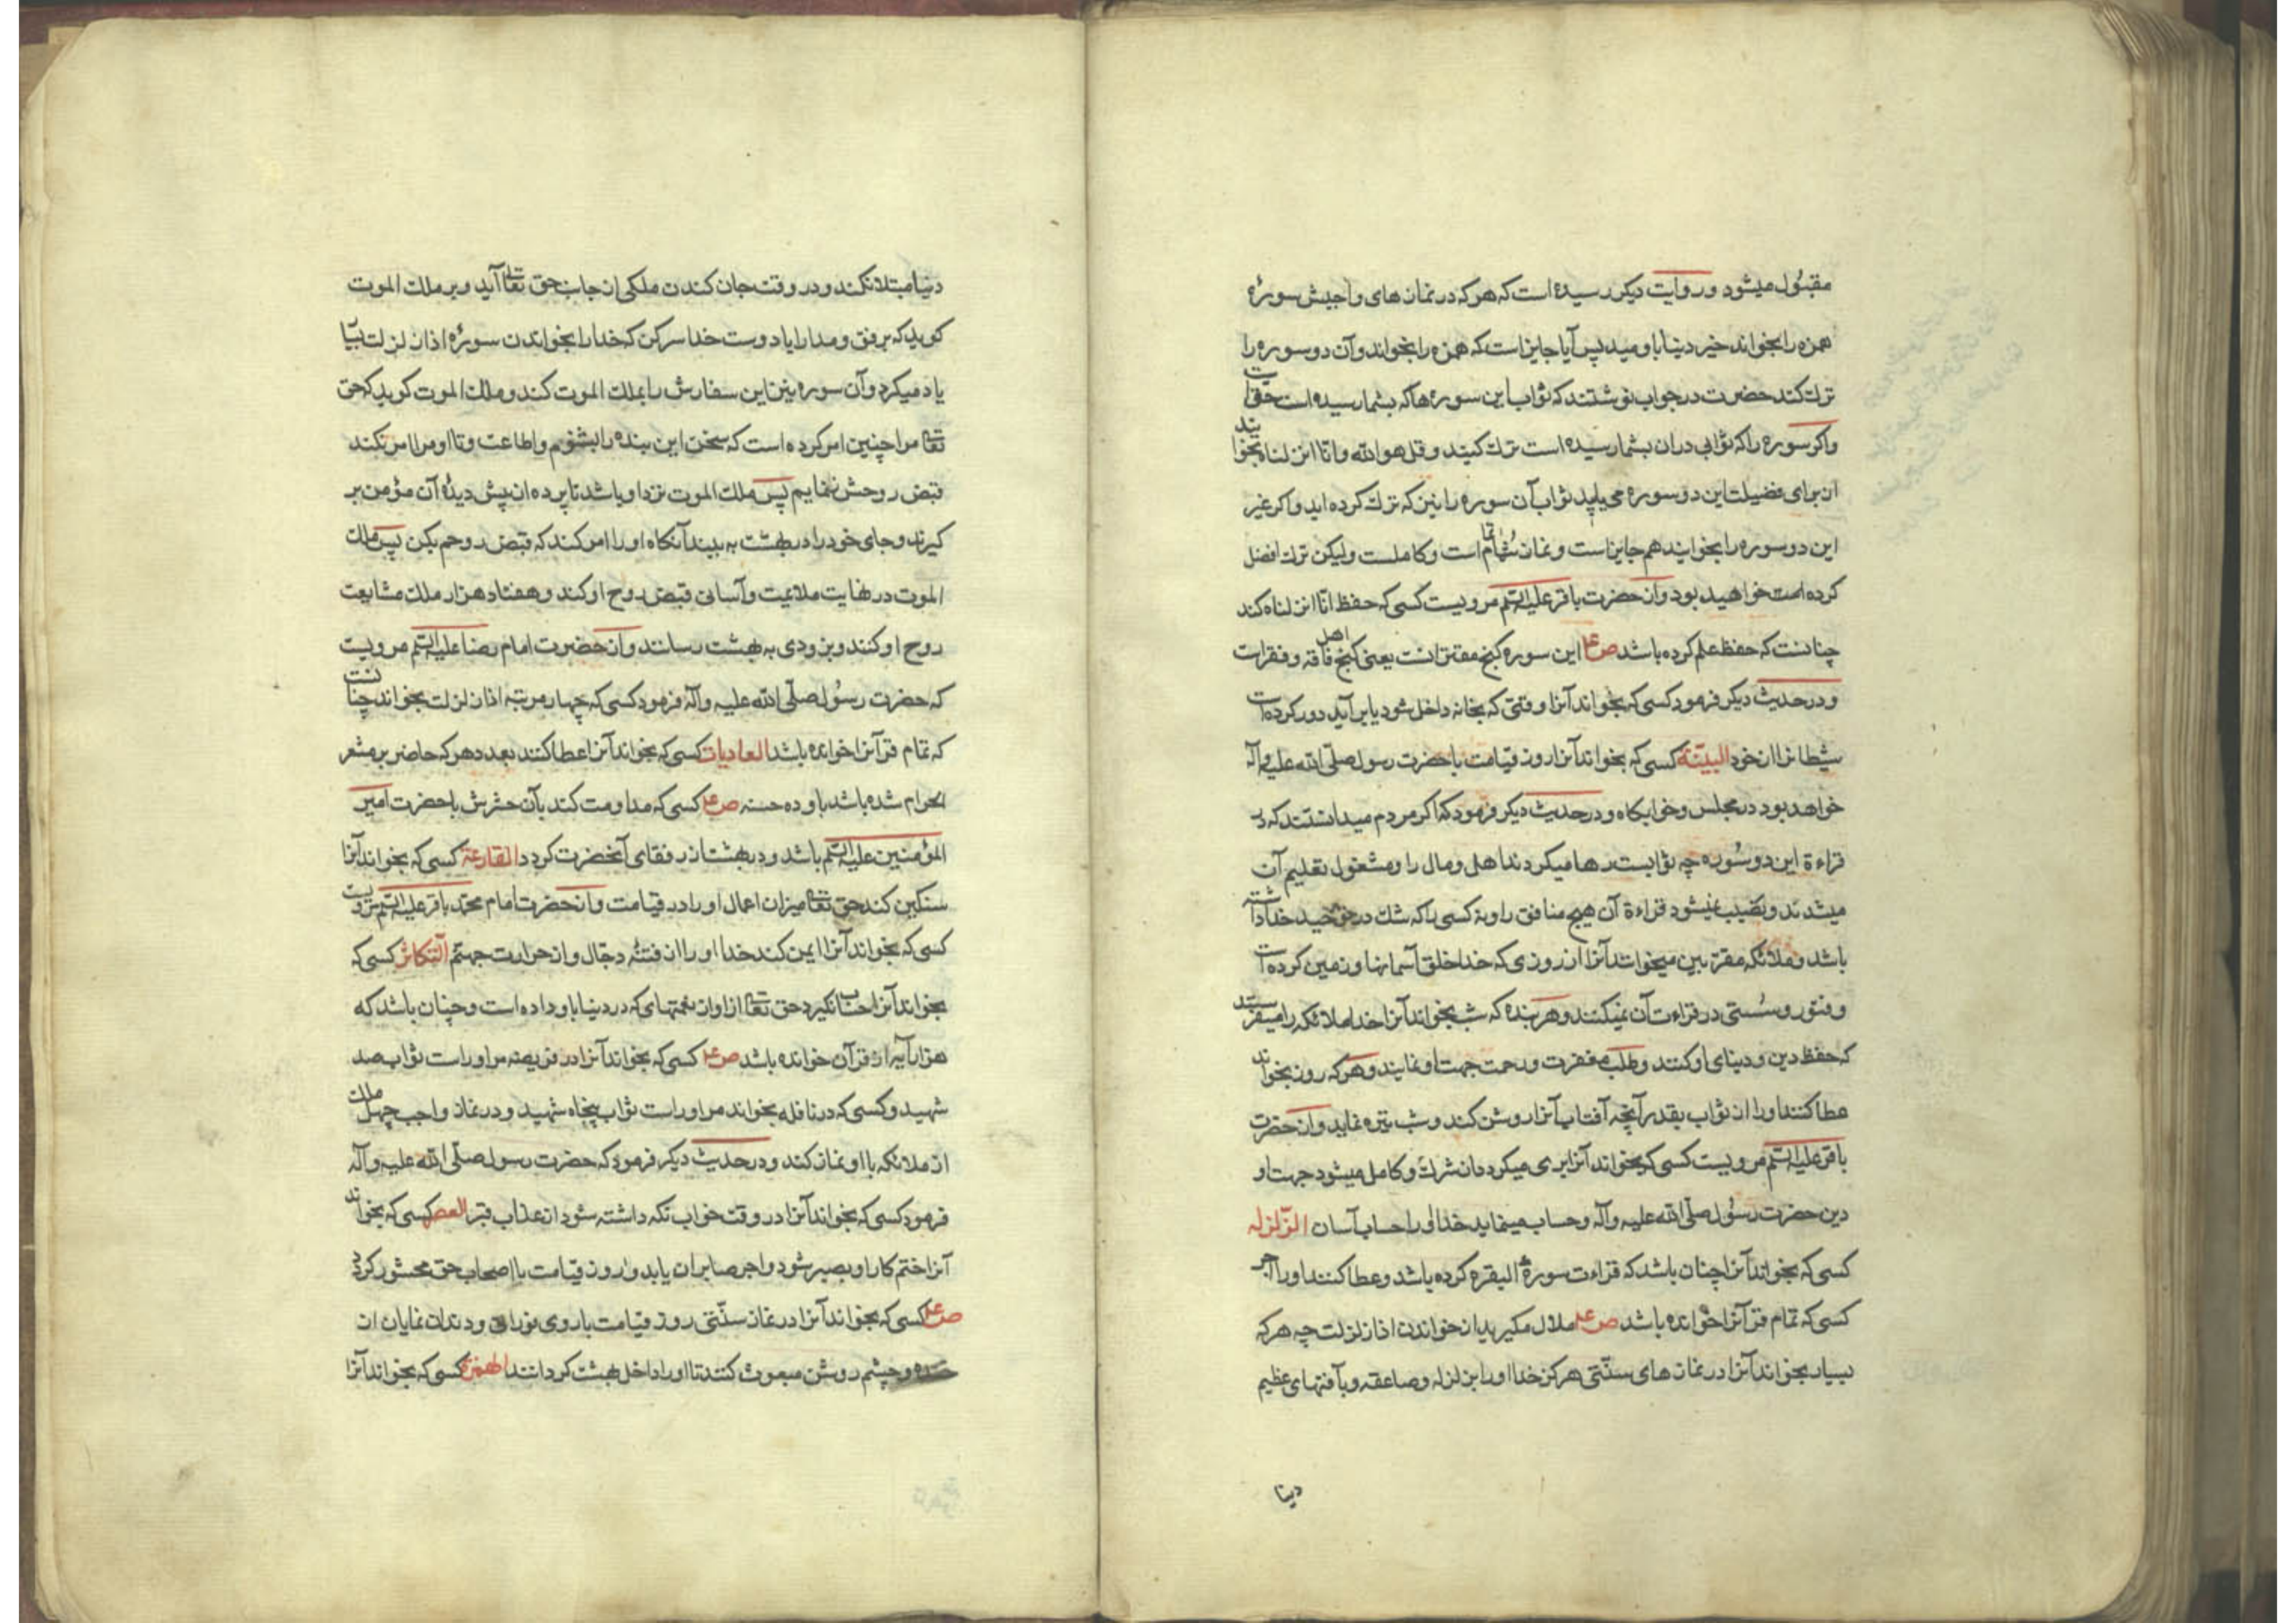 مقبول میشود و روایت دیکر رسیده است که هر که در نمازهای واجبش سورهٔ
همزه را بخواند خیر دنیا باو میدهند پس آیا جایز است که همزه را بخواند و آن دو سوره را
ترک کند حضرت در جواب نوشتند که ثواب این سوره ها که بشما رسیده است حق است
و اکر سوره را که ثوابی دران بشما رسیده است ترک کنید و قل هو الله و انا انزلناه بخوانید
از برای فضیلت این دو سوره می یابید ثواب آن سوره را نیز که ترک کرده اید و اکر غیر
این دو سوره را بخوانید هم جایز است و نماز شما تمام است و کاملست ولیکن ترک افضل
کرده خواهید بود و از حضرت باقر علیه السلم مرویست کسی که حفظ انا انزلناه کند
چنانست که حفظ علم کرده باشد ص ع این سوره کنج مقترانست یعنی کنج اهل فاقه و فقراست
و در حدیث دیکر فرمود کسی که بخواند آنرا وقتی که بخانه داخل شود یا برآید دور کرده است
شیطانرا از خود البینة کسی که بخواند آنرا روز قیامت با حضرت رسول صلی الله علیه و آله
خواهد بود در مجلس و خوابکاه و در حدیث دیکر فرمود که اکر مردم میدانستند که در
قراءة این دو سوره چه ثوابست رها میکردند اهل و مال را و مشغول تعلیم آن
میشدند و نصیب نمیشود قراءة آن هیچ منافق را و نه کسی را که شک در توحید خدا داشته
باشد و ملائکه مقربین میخوانند آنرا از روزی که خدا خلق آسمانها و زمین کرده است
و فتور و سستی در قراءت آن نمیکنند و هر بنده که شب بخواند آنرا خدا ملائکه را میفرستد
که حفظ دین و دنیای او کنند و طلب مغفرت و رحمت جهت او نمایند و هر که روز بخواند
عطا کنند او را از ثواب بقدر آنچه آفتاب آنرا روشن کند و شب تیره نماید و از حضرت
باقر علیه السلم مرویست کسی که بخواند آنرا بری میکردد از شرک و کامل میشود جهت او
دین حضرت رسول صلی الله علیه و آله و حساب مینماید خدا او را حساب آسان الزلزله
کسی که بخواند آنرا چنان باشد که قراءت سورهٔ البقره کرده باشد و عطا کنند او را اجر
کسی که تمام قرآنرا خوانده باشد ص ع ملال مکیرید از خواندن اذا زلزلت چه هر که
بسیار بخواند آنرا در نمازهای سنتی هرکز خدا او را بزلزله و صاعقه و بآفتهای عظیم
دنیا
دنیا مبتلا نکند و در وقت جان کندن ملکی از جانب حق تعالی آید و بر ملک الموت
کوید که برفق و مدارا با دوست خدا سر کن که خدا را بخواندن سورهٔ اذا زلزلت بسیار
یاد میکرد و آن سوره نیز این سفارش را بملک الموت کند و ملک الموت کوید که حق
تعالی مرا چنین امر کرده است که سخن این بنده را بشنوم و اطاعت و تا او مرا امر نکند
قبض روحش ننمایم پس ملک الموت نزد او باشد تا پرده از پیش دیدهٔ آن مؤمن بر
کیرند و جای خود را در بهشت به بیند آنکاه او را امر کند که قبض روحم بکن پس ملک
الموت در نهایت ملایمت و آسانی قبض روح او کند و هفتاد هزار ملک مشایعت
روح او کنند و بزودی به بهشت رسانند و از حضرت امام رضا علیه السلم مرویست
که حضرت رسول صلی الله علیه و آله فرمود کسی که چهار مرتبه اذا زلزلت بخواند چنانست
که تمام قرآنرا خوانده باشد العادیات کسی که بخواند آنرا عطا کنند بعدد هر که حاضر بر مشعر
الحرام شده باشد باو ده حسنه ص ع کسی که مداومت کند بآن حشرش با حضرت امیر
المؤمنین علیه السلم باشد و در بهشت از رفقای آنحضرت کردد القارعة کسی که بخواند آنرا
سنکین کند حق تعالی میزان اعمال او را در قیامت و از حضرت امام محمد باقر علیه السلم مرویست
کسی که بخواند آنرا ایمن کند خدا او را از فتنهٔ دجال و از حرارت جهنم التکاثر کسی که
بخواند آنرا حساب نکیرد حق تعالی از او از نعمتهای که در دنیا باو داده است و چنان باشد که
هزار آیه از قرآن خوانده باشد ص ع کسی که بخواند آنرا در فریضه مر او راست ثواب صد
شهید و کسی که در نافله بخواند مر او راست ثواب پنجاه شهید و در نماز واجب چهل ملک
از ملائکه با او نماز کند و در حدیث دیکر فرمود که حضرت رسول صلی الله علیه و آله
فرمود کسی که بخواند آنرا در وقت خواب نکه داشته شود از عذاب قبر العصر کسی که بخواند
آنرا ختم کار او بصبر شود و اجر صابران یابد و او روز قیامت با اصحاب حق محشور کردد
ص ع کسی که بخواند آنرا در نماز سنتی روز قیامت با روی نورانی و دندان نمایان از
خنده و چشم روشن مبعوث کنند تا او را داخل بهشت کردانند الهمزة کسی که بخواند آنرا